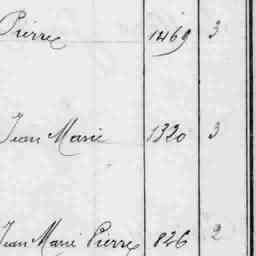 Pierre 1469 3
Jean Marie 1320 3
Jean Marie Pierre 826 2